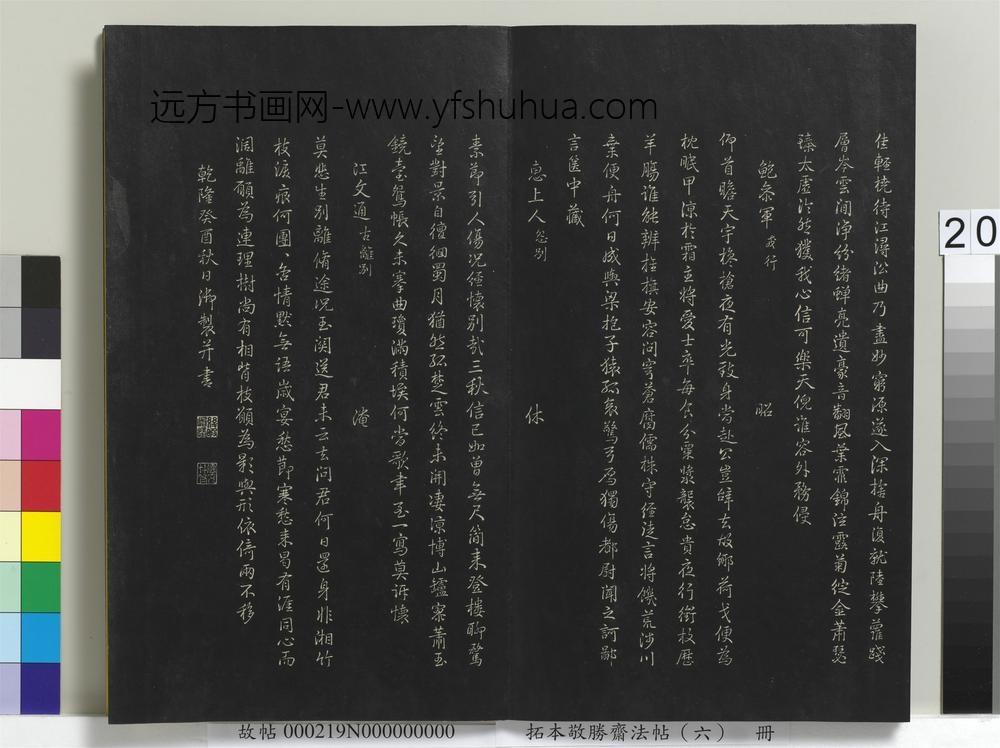 远方书画网-www.yfshuhua.com
佳輕橈待江潯沿曲乃盡妙窮源遂入深捨舟復就陸攀蘿踐
層岑雲澗淨紛緒蟬亮遺豪音翻風葉霏錦注露菊綻金蕭瑟
臻太虛泠然獲我心信可樂天倪誰容外務侵
鮑參軍 戎行 昭
仰首瞻天宇欃槍夜有光致身當赴公豈辭去故鄉荷戈便為
枕眠甲涼於霜主將愛士卒每食分壺漿襲怠貴夜行銜枚歷
羊腸誰能辨拄撫安容問穹蒼腐儒株守經徒言將饑荒涉川
棄便舟何日成輿梁抱子猿孤哀驚弓鴈獨傷都尉聞之訶鄙
言匿中藏
惠上人 怨別 休
素節引人傷況經懷別哉三秋信已如曾無尺簡來登樓聊騖
望對景自徘徊蜀月猶然孤楚雲終未開淒涼博山罏寂蕭玉
鏡臺鴛帳久未搴曲瓊滿積埃何當歌聿至一寫莫訴懷
江文通 古離別 淹
莫悲生別離脩途況玉關送君未云去問君何日還身非湘竹
枝淚痕何團團含情默無語歲宴愁即寒愁來曷有涯同心而
濶離願為連理樹尚有相背枝願為影與形依倚兩不移
乾隆癸酉秋日御製并書
20
故帖 000219N000000000
拓本敬勝齋法帖（六） 冊